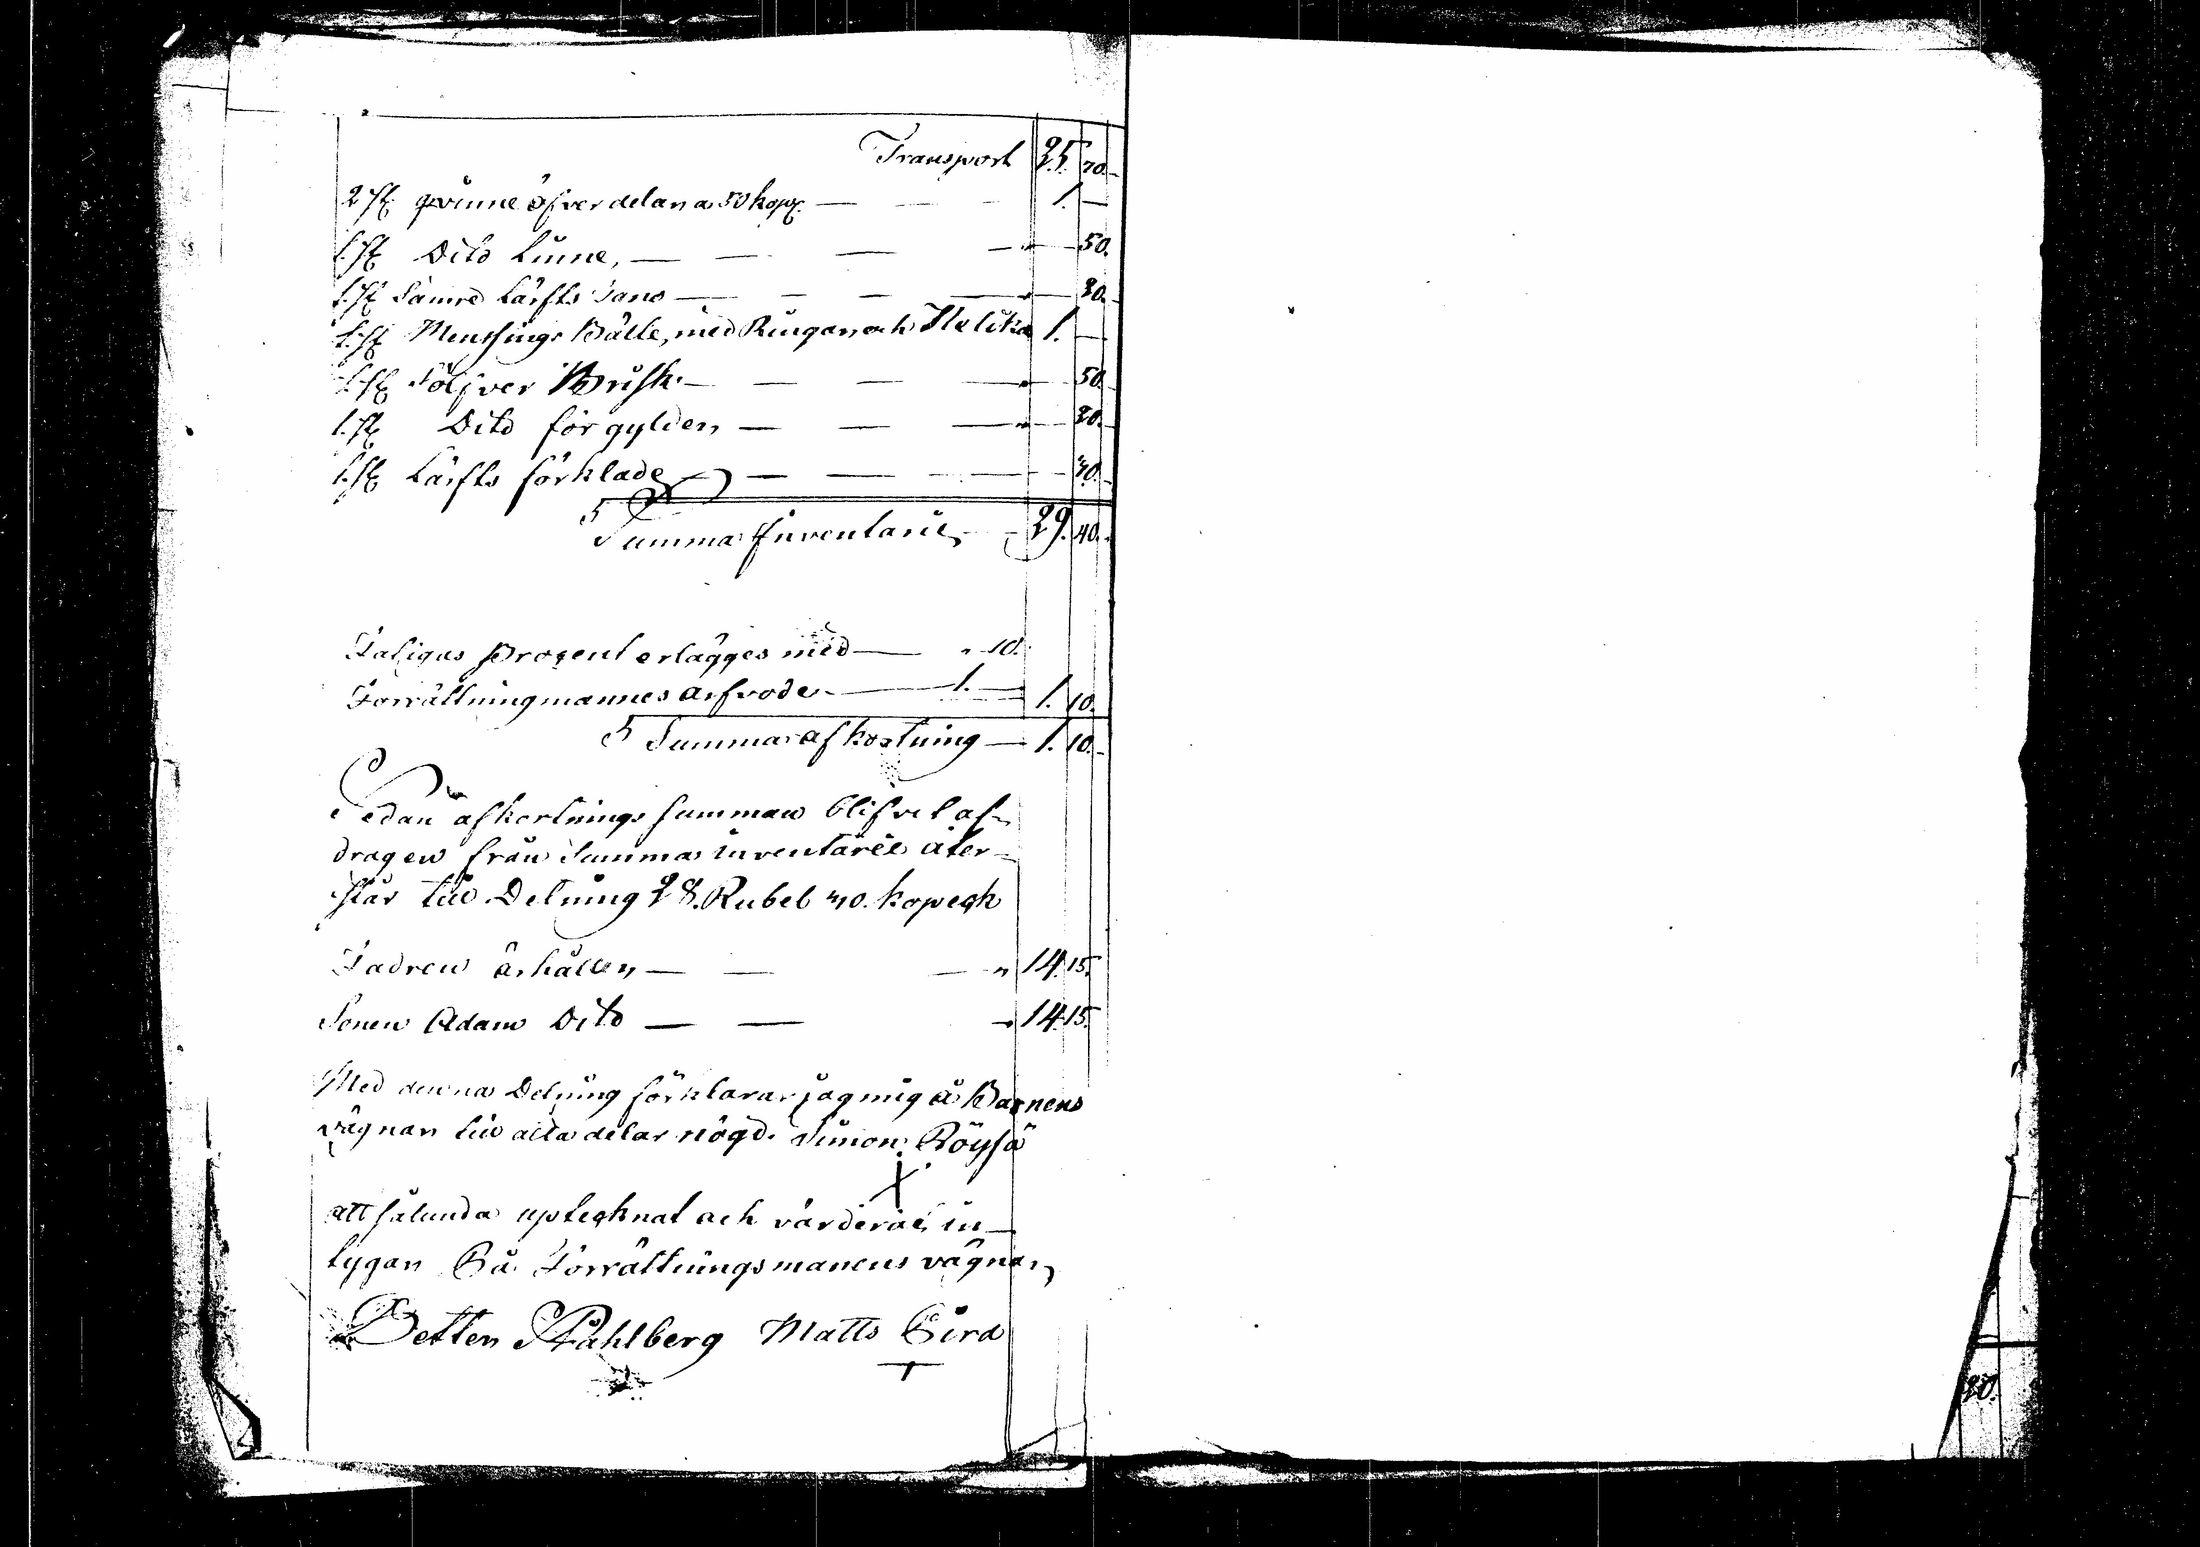 Transport 25. 70.
2 st. qvinne öfver delar a 50 kop. — 1. —
1. st Dito Linne, — 50.
1. st Sämre Lärfts Dano — 20.
1. st Messings Bälte, med Ringar och 1. —
1. st Sölfver Brisk. — 50.
1. st Dito för gylden — 20.
1. st Lärfts förklade — 30.
Summa Inventarie, 29. 40.
Fatigas Prosent erlägges med — 10.
Förrättningmannes arfvode — 1. — 1. 10.
Summa afkortning — 1. 10.
Sedan afkortnings summan blifvit af-
dragen från Summa inventarie åter-
står till Delning 28. Rubel 30. kopeck
Fadren ärhåller — 14. 15.
Sonen Adam Dito — 14. 15.
Med denna Delning förklarar jag mig å Barnens
vägnar till alla delar nögd. Simon Röysä
X
att sålunda uptecknat och värderat in-
tygar På Förrättningsmanens vägnar,
Petter Ståhlberg Matts Pird
20.